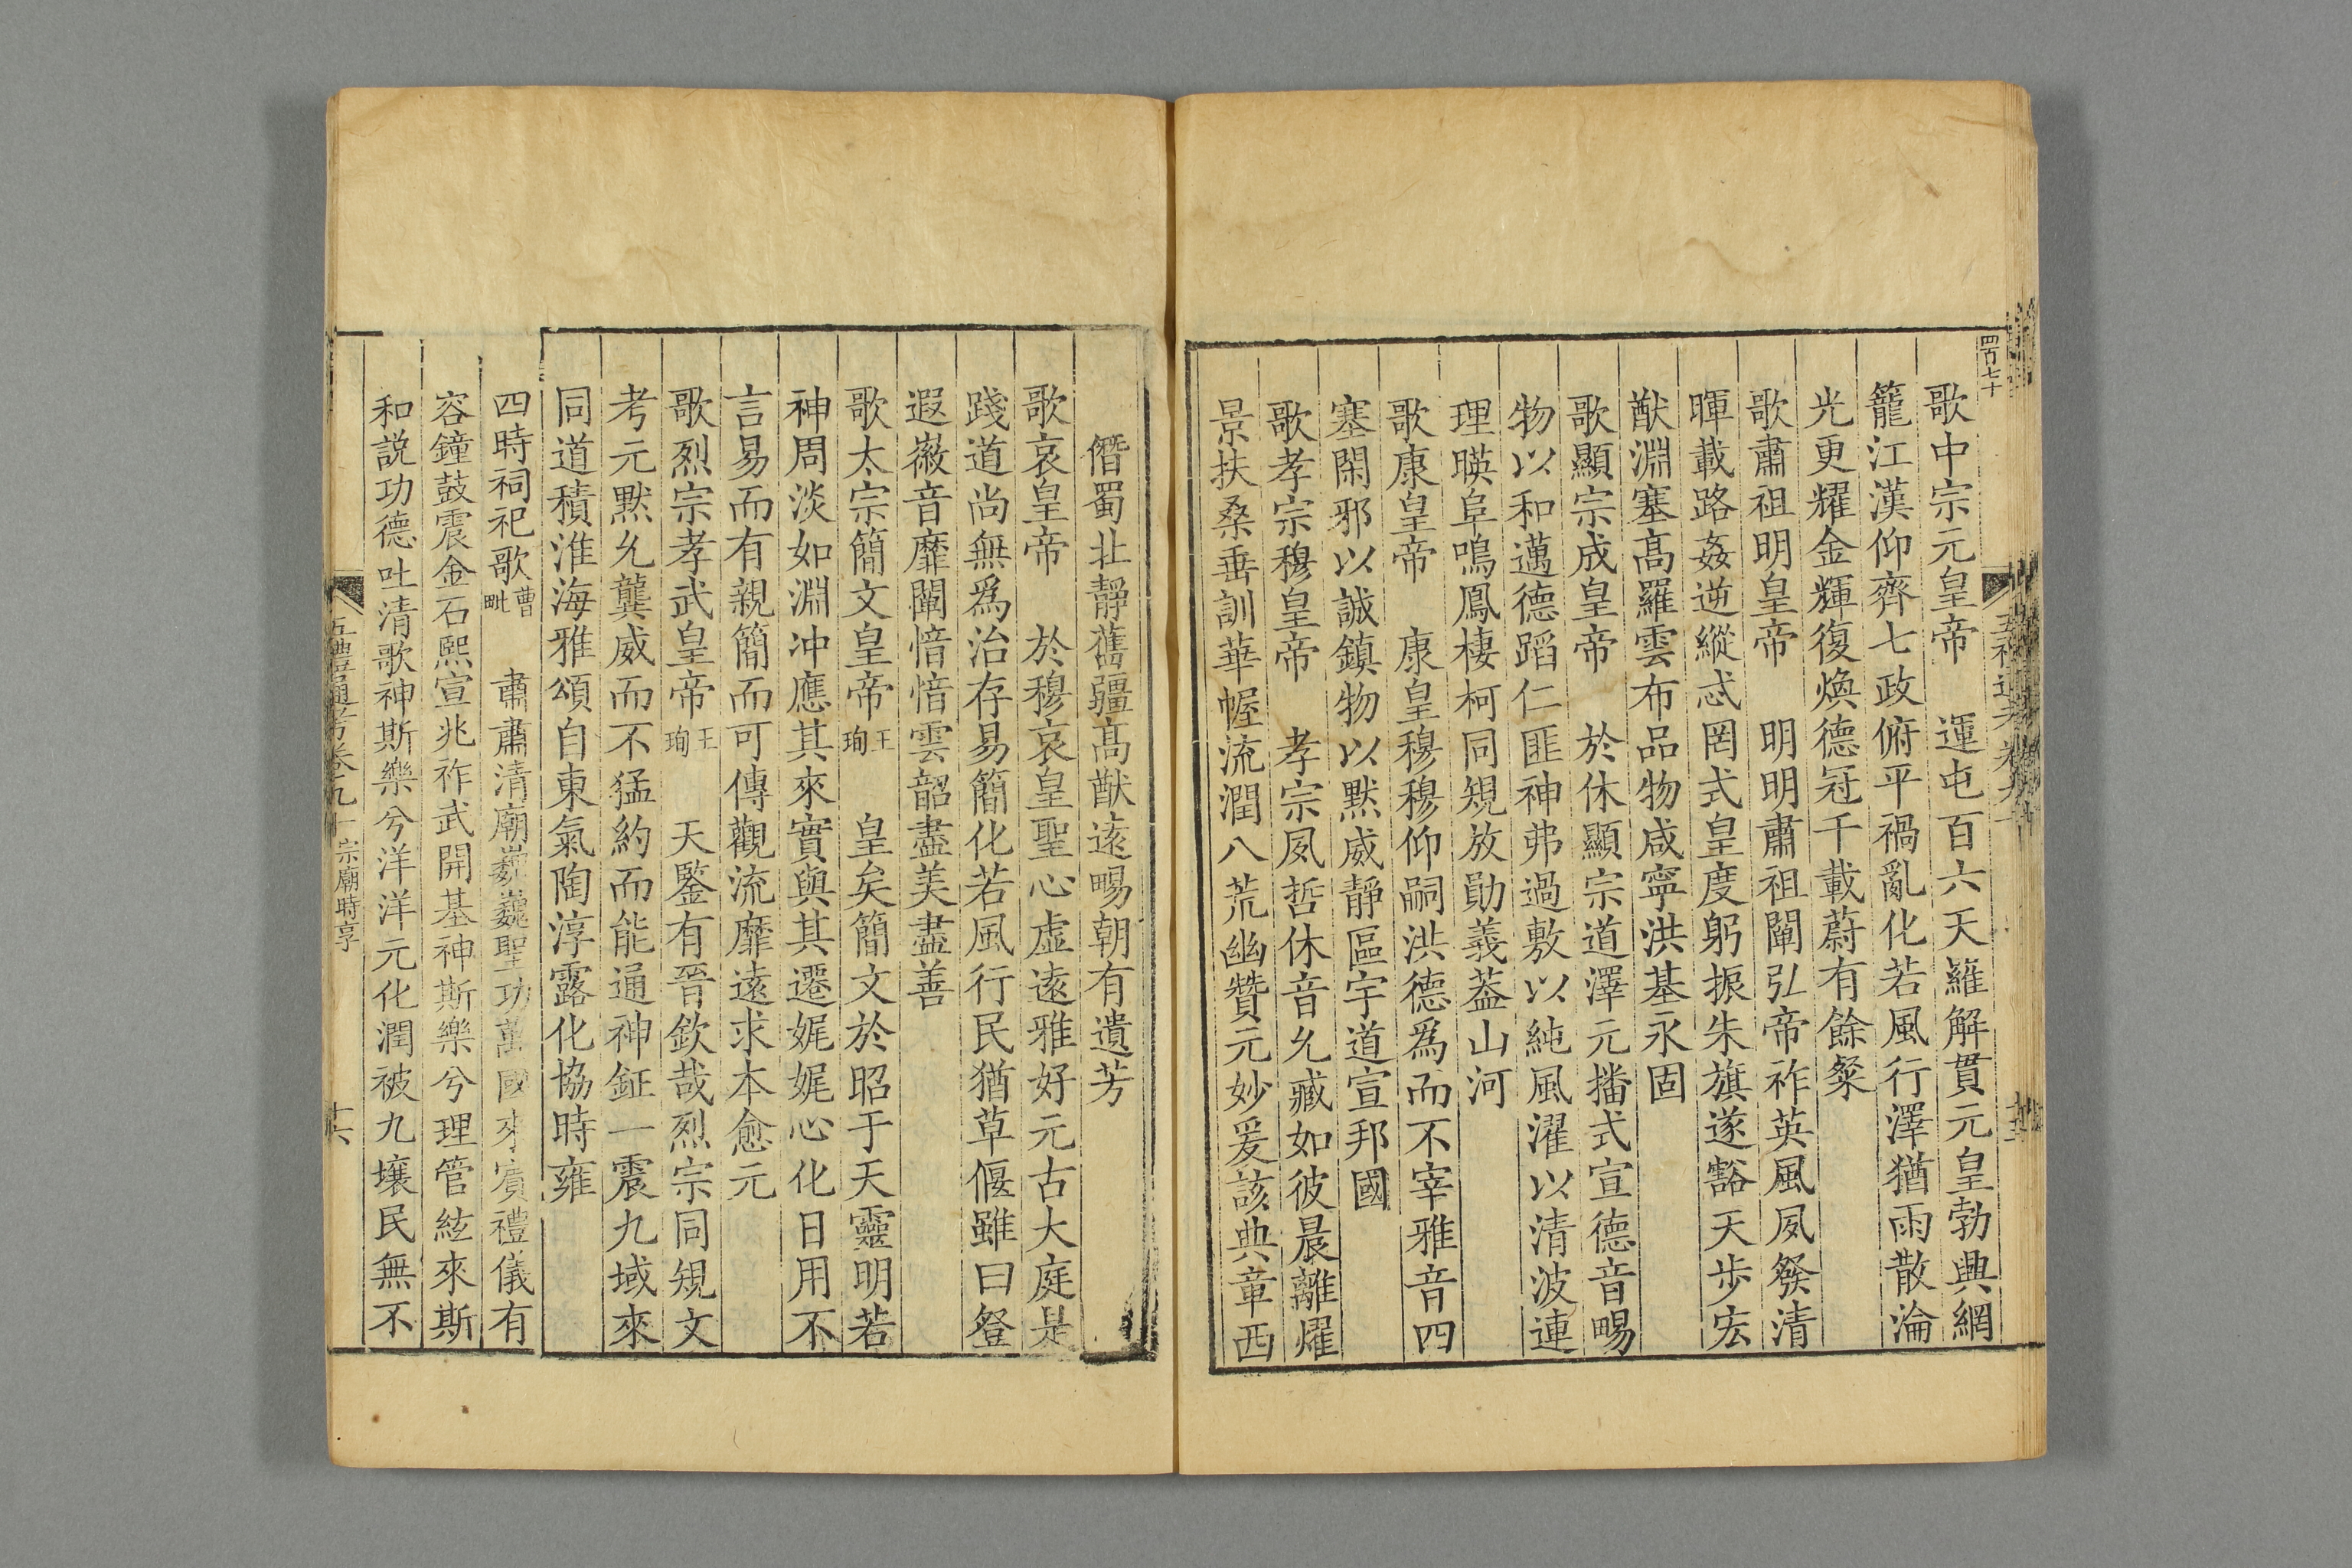 四百七十
歌中宗元皇帝　運屯百六天羅解貫元皇勃興網
籠江漢仰齊七政俯平禍亂化若風行澤猶雨散淪
光更耀金輝復煥德冠千載蔚有餘粲
歌肅祖明皇帝　明明肅祖闡弘帝祚英風夙發清
暉載路姦逆縱忒罔式皇度躬振朱旗遂豁天步宏
猷淵塞高羅雲布品物咸寧洪基永固
歌顯宗成皇帝　於休顯宗道澤元播式宣德音暢
物以和邁德蹈仁匪神弗過敷以純風濯以清波連
理暎阜鳴鳳棲柯同規放勛義葢山河
歌康皇帝　康皇穆穆仰嗣洪德爲而不宰雅音四
塞閑邪以誠鎮物以默威靜區宇道宣邦國
歌孝宗穆皇帝　孝宗夙哲休音允臧如彼晨離燿
景扶桑垂訓華幄流潤八荒幽贊元妙爰該典章西
僭蜀北靜舊疆高猷遠暢朝有遺芳
歌哀皇帝　於穆哀皇聖心虛遠雅好元古大庭是
踐道尚無爲治存易簡化若風行民猶草偃雖曰登
遐徽音靡闡愔愔雲韶盡美盡善
歌太宗簡文皇帝王珣　皇矣簡文於昭于天靈明若
神周淡如淵冲應其來實與其遷娓娓心化日用不
言易而有親簡而可傳觀流靡遠求本愈元
歌烈宗孝武皇帝王珣　天鑒有晉欽哉烈宗同規文
考元默允龔威而不猛約而能通神鉦一震九域來
同道積淮海雅頌自東氣陶淳露化協時雍
四時祠祀歌曹毗　肅肅清廟巍巍聖功萬國來賓禮儀有
容鐘鼓震金石熙宣兆祚武開基神斯樂兮理管絃來斯
和説功德吐清歌神斯樂兮洋洋元化潤被九壤民無不
五禮通考卷九十　宗廟時享　十六